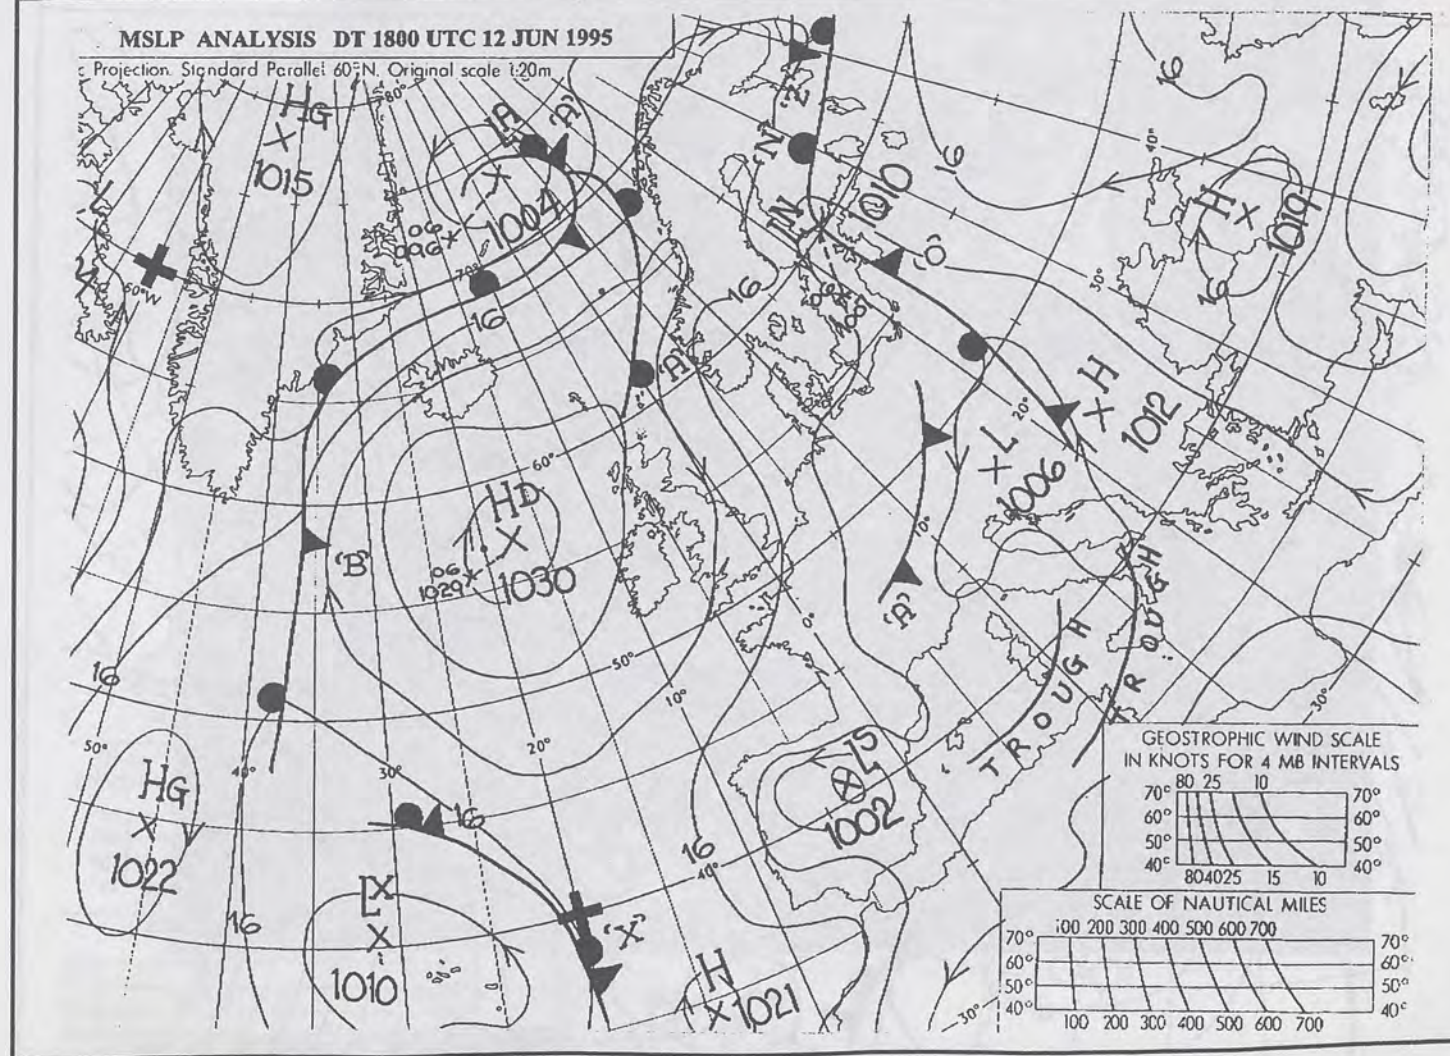 MSLP ANALYSIS DT 1800 UTC 12 JUN 1995
Projection. Standard Parallel 60°N. Original scale 1:20m
HG
1015
80°
LA
'A'
1004
06
996
70°
60°W
'Z'
'N'
LN
1010
'O'
16
16
40°
H
1019
16
30°
16
16
'A'
H
1012
20°
L
1006
10°
'A'
60°
HD
06
1029
1030
'B'
16
50°
0°
10°
20°
50°
40°
30°
HG
1022
16
16
LX
1010
'X'
16
40°
H
1021
LS
1002
TROUGH
TROUGH
30°
30°
GEOSTROPHIC WIND SCALE
IN KNOTS FOR 4 MB INTERVALS
80 25 10
70° 70°
60° 60°
50° 50°
40° 40°
80 40 25 15 10
SCALE OF NAUTICAL MILES
100 200 300 400 500 600 700
70° 70°
60° 60°
50° 50°
40° 40°
100 200 300 400 500 600 700